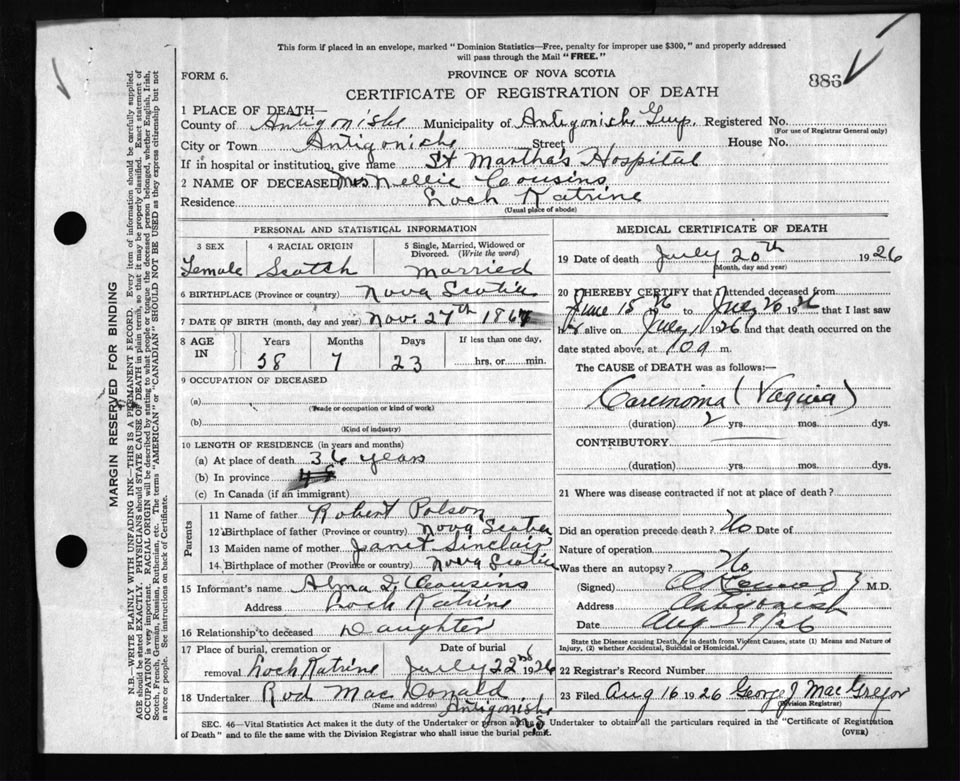 This form if placed in an envelope, marked "Dominion Statistics—Free, penalty for improper use $300," and properly addressed
will pass through the Mail "FREE."
FORM 6.
PROVINCE OF NOVA SCOTIA
886
CERTIFICATE OF REGISTRATION OF DEATH
1 PLACE OF DEATH—
County of Antigonish Municipality of Antigonish Registered No.
(For use of Registrar General only)
City or Town Antigonish Street House No.
If in hospital or institution, give name St Martha's Hospital
2 NAME OF DECEASED Mrs Nellie Cousins
Residence Loch Katrine
(Usual place of abode)
PERSONAL AND STATISTICAL INFORMATION
3 SEX 4 RACIAL ORIGIN 5 Single, Married, Widowed or
Divorced. (Write the word)
Female Scotch Married
6 BIRTHPLACE (Province or country) Nova Scotia
7 DATE OF BIRTH (month, day and year) Nov. 27th 1867
8 AGE IN Years Months Days If less than one day,
58 7 23 hrs. or min.
9 OCCUPATION OF DECEASED
(a)
(Trade or occupation or kind of work)
(b)
(Kind of industry)
10 LENGTH OF RESIDENCE (in years and months)
(a) At place of death 36 years
(b) In province
(c) In Canada (if an immigrant)
Parents
11 Name of father Robert Polson
12 Birthplace of father (Province or country) Nova Scotia
13 Maiden name of mother Janet Sinclair
14 Birthplace of mother (Province or country) Nova Scotia
15 Informant's name Alma D. Cousins
Address Loch Katrine
16 Relationship to deceased Daughter
17 Place of burial, cremation or Date of burial
removal Loch Katrine July 22nd 1926
18 Undertaker Rod MacDonald
(Name and address) Antigonish
N.S.
MEDICAL CERTIFICATE OF DEATH
19 Date of death July 20th 1926
(Month, day and year)
20 I HEREBY CERTIFY that I attended deceased from
June 15 26 to July 20 1926 that I last saw
her alive on July 1926 and that death occurred on
date stated above, at m.
The CAUSE of DEATH was as follows:—
Carcinoma (Vagina)
(duration) 2 yrs. mos. dys.
CONTRIBUTORY
(duration) yrs. mos. dys.
21 Where was disease contracted if not at place of death?
Did an operation precede death? No Date of
Nature of operation
Was there an autopsy? No
(Signed) M.D.
Address Antigonish
Date Aug 29/26
State the Disease causing Death, or in death from Violent Causes, state (1) Means and Nature of
Injury, (2) whether Accidental, Suicidal or Homicidal.
22 Registrar's Record Number
23 Filed Aug 16 1926 George J MacGregor
(Division Registrar)
SEC. 46—Vital Statistics Act makes it the duty of the Undertaker or person acting as Undertaker to obtain all the particulars required in the "Certificate of Registration
of Death" and to file the same with the Division Registrar who shall issue the burial permit.
(OVER)
MARGIN RESERVED FOR BINDING
N.B.—WRITE PLAINLY WITH UNFADING INK—THIS IS A PERMANENT RECORD. Every item of information should be carefully supplied.
AGE should be stated EXACTLY. PHYSICIANS should STATE CAUSE OF DEATH in plain terms, so that it may be properly classified. Exact statement of
OCCUPATION is very important. RACIAL ORIGIN will be described by stating to what people or tongue the deceased person belonged, whether English, Irish,
Scotch, French, German, Russian, Ruthenian, etc. The terms "AMERICAN" or "CANADIAN" SHOULD NOT BE USED as they express citizenship but not
a race or people. See instructions on back of Certificate.